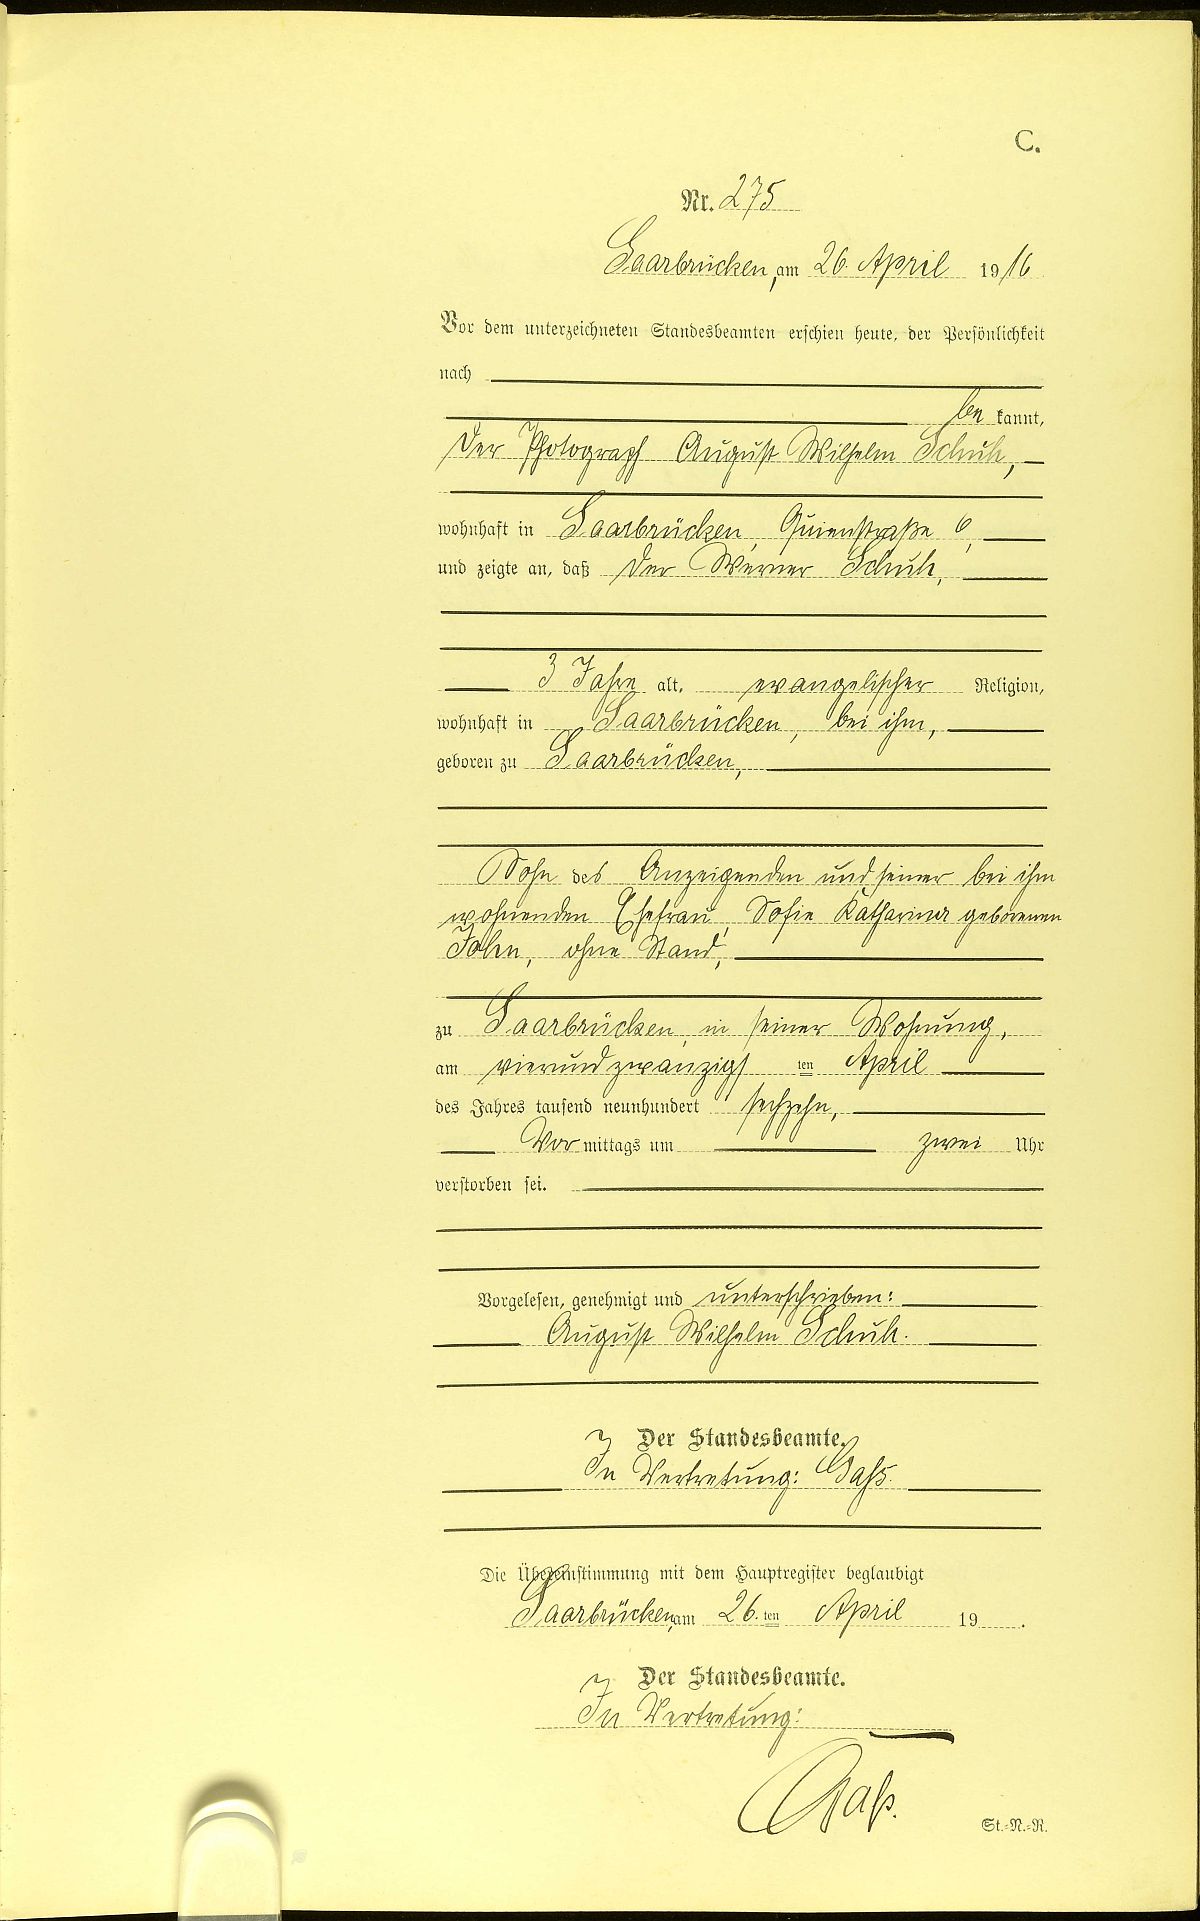 C.
Nr. 275
Saarbrücken, am 26. April 1916
Vor dem unterzeichneten Standesbeamten erschien heute, der Persönlichkeit
nach
be kannt,
der Photograph August Wilhelm Schuh,
wohnhaft in Saarbrücken, Quienstraße 6,
und zeigte an, daß der Werner Schuh,
3 Jahre alt, evangelischer Religion,
wohnhaft in Saarbrücken, bei ihm,
geboren zu Saarbrücken,
Sohn des Anzeigenden und seiner bei ihm
wohnenden Ehefrau, Sofie Katharina geborenen
ohne Stand,
zu Saarbrücken, in seiner Wohnung,
am vierundzwanzigs ten April
des Jahres tausend neunhundert sechzehn,
Vor mittags um zwei Uhr
verstorben sei.
Vorgelesen, genehmigt und unterschrieben:
August Wilhelm Schuh.
Der Standesbeamte.
In Vertretung: Gaß.
Die Übereinstimmung mit dem Hauptregister beglaubigt
Saarbrücken, am 26. ten April 19 .
Der Standesbeamte.
In Vertretung:
Gaß.
St.-N.-R.